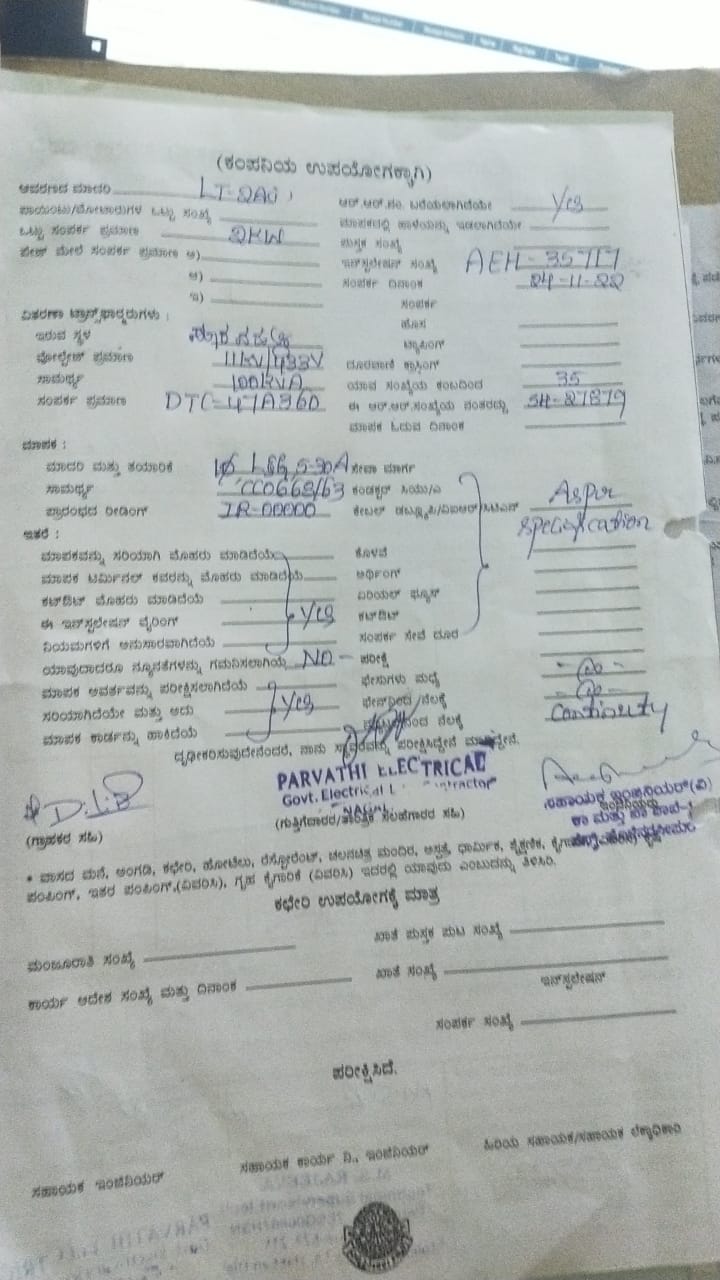 (ಕಂಪನಿಯ ಉಪಯೋಗಕ್ಕಾಗಿ)
ಆವರಣದ ಮಾದರಿ
ಆರ್.ಆರ್.ನಂ. ಬರೆಯಲಾಗಿದೆಯೇ Yes
ಪಾಯಿಂಟು/ಮೋಟಾರುಗಳ ಒಟ್ಟು ಸಂಖ್ಯೆ
ಒಟ್ಟು ಸಂಪರ್ಕ ಪ್ರಮಾಣ 2KW
ಪುಸ್ತಕ ಸಂಖ್ಯೆ
ಫೇಸ್ ಮೇಲೆ ಸಂಪರ್ಕ ಪ್ರಮಾಣ ಅ)
ಇನ್‌ಸ್ಟಲೇಷನ್ ಸಂಖ್ಯೆ AEH-35717
ಆ)
ಸಂಪರ್ಕ ದಿನಾಂಕ 24-11-22
ಇ)
ಸಂಪರ್ಕ
ವಿತರಣಾ ಟ್ರಾನ್ಸ್‌ಫಾರ್ಮರುಗಳು :
ಹೊಸ
ಇರುವ ಸ್ಥಳ
ಟ್ಯಾಪಿಂಗ್
ವೋಲ್ಟೇಜ್ ಪ್ರಮಾಣ 11KV/433V
ದೂರವಾಣಿ ಕ್ರಾಸಿಂಗ್
ಸಾಮರ್ಥ್ಯ 100KVA
ಯಾವ ಸಂಖ್ಯೆಯ ಕಂಬದಿಂದ 35
ಸಂಪರ್ಕ ಪ್ರಮಾಣ DTC-47A360
ಈ ಆರ್.ಆರ್.ಸಂಖ್ಯೆಯ ನಂತರದ್ದು SH-27879
ಮಾಪಕ ಓದುವ ದಿನಾಂಕ
ಮಾಪಕ :
ಮಾದರಿ ಮತ್ತು ತಯಾರಿಕೆ 5-30A ಸೇವಾ ಮಾರ್ಗ
ಸಾಮರ್ಥ್ಯ ಕಂಡಕ್ಟರ್ ಸಿಯು/ಎ Asper
ಪ್ರಾರಂಭದ ರೀಡಿಂಗ್ IR-00000 ಕೇಬಲ್ specification
ಇತರೆ :
ಮಾಪಕವನ್ನು ಸರಿಯಾಗಿ ಮೊಹರು ಮಾಡಿದೆಯೆ ಕೊಳವೆ
ಮಾಪಕ ಟರ್ಮಿನಲ್ ಕವರನ್ನು ಮೊಹರು ಮಾಡಿದೆಯೆ ಅರ್ಥಿಂಗ್
ಕಟ್‌ಔಟ್ ಮೊಹರು ಮಾಡಿದೆಯೆ ಏರಿಯಲ್ ಫ್ಯೂಸ್
ಈ ಇನ್‌ಸ್ಟಲೇಷನ್ ವೈರಿಂಗ್ Yes ಕಟ್‌ಔಟ್
ನಿಯಮಗಳಿಗೆ ಅನುಸಾರವಾಗಿದೆಯೇ ಸಂಪರ್ಕ ಸೇವೆ ದೂರ
ಯಾವುದಾದರೂ ನ್ಯೂನತೆಗಳನ್ನು ಗಮನಿಸಲಾಗಿಯೆ NO - ಪರೀಕ್ಷೆ
ಮಾಪಕ ಆವರ್ತವನ್ನು ಪರೀಕ್ಷಿಸಲಾಗಿದೆಯೆ ಫೇಸುಗಳು ಮಧ್ಯೆ
ಸರಿಯಾಗಿದೆಯೇ ಮತ್ತು ಅದು Yes ನೆಲಕ್ಕೆ
ಮಾಪಕ ಕಾರ್ಡನ್ನು ಹಾಕಿದೆಯೆ ನೆಲಕ್ಕೆ Continuity
ದೃಢೀಕರಿಸುವುದೇನೆಂದರೆ, ನಾನು ಸ್ಥಾವರವನ್ನು ಪರೀಕ್ಷಿಸಿದ್ದೇನೆ
PARVATHI ELECTRICAL
Govt. Electrical Contractor
ಸಹಾಯಕ ಇಂಜಿನಿಯರ್(ವಿ)
(ಗ್ರಾಹಕರ ಸಹಿ)
* ವಾಸದ ಮನೆ, ಅಂಗಡಿ, ಕಛೇರಿ, ಹೋಟೆಲು, ರೆಸ್ಟೋರೆಂಟ್, ಚಲನಚಿತ್ರ ಮಂದಿರ, ಆಸ್ಪತ್ರೆ, ಧಾರ್ಮಿಕ, ಶೈಕ್ಷಣಿಕ,
ಪಂಪಿಂಗ್, ಇತರ ಪಂಪಿಂಗ್,(ವಿವರಿಸಿ), ಗೃಹ ಕೈಗಾರಿಕೆ (ವಿವರಿಸಿ) ಇದರಲ್ಲಿ ಯಾವುದು ಎಂಬುದನ್ನು ತಿಳಿಸಿರಿ.
ಕಛೇರಿ ಉಪಯೋಗಕ್ಕೆ ಮಾತ್ರ
ಮಂಜೂರಾತಿ ಸಂಖ್ಯೆ
ಖಾತೆ ಪುಸ್ತಕ ಪುಟ ಸಂಖ್ಯೆ
ಕಾರ್ಯ ಆದೇಶ ಸಂಖ್ಯೆ ಮತ್ತು ದಿನಾಂಕ
ಖಾತೆ ಸಂಖ್ಯೆ
ಇನ್‌ಸ್ಟಲೇಷನ್
ಸಂಪರ್ಕ ಸಂಖ್ಯೆ
ಪರೀಕ್ಷಿಸಿದೆ.
ಸಹಾಯಕ ಇಂಜಿನಿಯರ್
ಸಹಾಯಕ ಕಾರ್ಯ ನಿ., ಇಂಜಿನಿಯರ್
ಹಿರಿಯ ಸಹಾಯಕ/ಸಹಾಯಕ ಲೆಕ್ಕಾಧಿಕಾರಿ